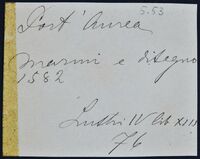 5.53
Port' Aurea
Marmi e disegno
1582
IV XIII
76